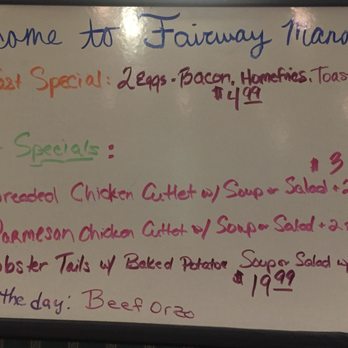 come to Fairway Mano
fast Special: 2 Eggs - Bacon, Homefries, Toas
$4.99
Specials:
$3
Breaded Chicken Cutlet w/ Soup or Salad + 2
Parmesan Chicken Cutlet w/ Soup or Salad + 2
obster Tails w/ Baked Potatoe Soup or Salad w/
$19.99
the day: Beef Orzo